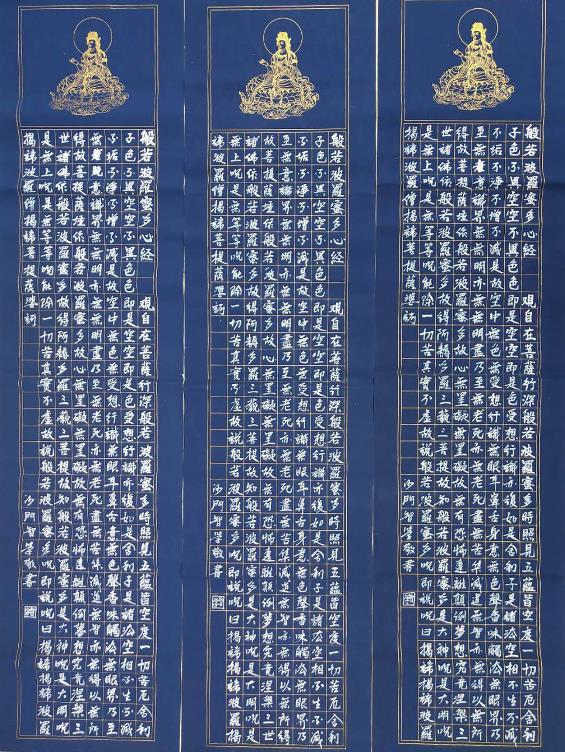 般若波羅蜜多心经 觀自在菩薩行深般若波羅蜜多時照見五蘊皆空度一切苦厄舍利
子色不異空空不異色色即是空空即是色受想行識亦復如是舍利子是諸法空相不生不滅
不垢不淨不增不減是故空中無色無受想行識無眼耳鼻舌身意無色聲香味觸法無眼界乃
至無意識界無無明亦無無明盡乃至無老死亦無老死盡無苦集滅道無智亦無得以無所
得故菩提薩埵依般若波羅蜜多故心無罣礙無罣礙故無有恐怖遠離顛倒夢想究竟涅槃三
世諸佛依般若波羅蜜多故得阿耨多羅三藐三菩提故知般若波羅蜜多是大神咒是大明咒
是無上咒是無等等咒能除一切苦真實不虛故說般若波羅蜜多咒即說咒曰揭諦揭諦波羅
揭諦波羅僧揭諦菩提薩婆訶 沙門智榮敬書
般若波羅蜜多心经 觀自在菩薩行深般若波羅蜜多時照見五蘊皆空度一切苦厄舍利
子色不異空空不異色色即是空空即是色受想行識亦復如是舍利子是諸法空相不生不滅
不垢不淨不增不減是故空中無色無受想行識無眼耳鼻舌身意無色聲香味觸法無眼界乃
至無意識界無無明亦無無明盡乃至無老死亦無老死盡無苦集滅道無智亦無得以無所得
故菩提薩埵依般若波羅蜜多故心無罣礙無罣礙故無有恐怖遠離顛倒夢想究竟涅槃三世
諸佛依般若波羅蜜多故得阿耨多羅三藐三菩提故知般若波羅蜜多是大神咒是大明咒是
無上咒是無等等咒能除一切苦真實不虛故說般若波羅蜜多咒即說咒曰揭諦揭諦波羅揭
諦波羅僧揭諦菩提薩婆訶 沙門智榮敬書
般若波羅蜜多心经 觀自在菩薩行深般若波羅蜜多時照見五蘊皆空度一切苦厄舍利
子色不異空空不異色色即是空空即是色受想行識亦復如是舍利子是諸法空相不生不滅
不垢不淨不增不減是故空中無色無受想行識無眼耳鼻舌身意無色聲香味觸法無眼界乃至
無意識界無無明亦無無明盡乃至無老死亦無老死盡無苦集滅道無智亦無得以無所
得故菩提薩埵依般若波羅蜜多故心無罣礙無罣礙故無有恐怖遠離顛倒夢想究竟涅槃三
世諸佛依般若波羅蜜多故得阿耨多羅三藐三菩提故知般若波羅蜜多是大神咒是大明咒
是無上咒是無等等咒能除一切苦真實不虛故說般若波羅蜜多咒即說咒曰揭諦揭諦波羅
揭諦波羅僧揭諦菩提薩婆訶 沙門智榮敬書